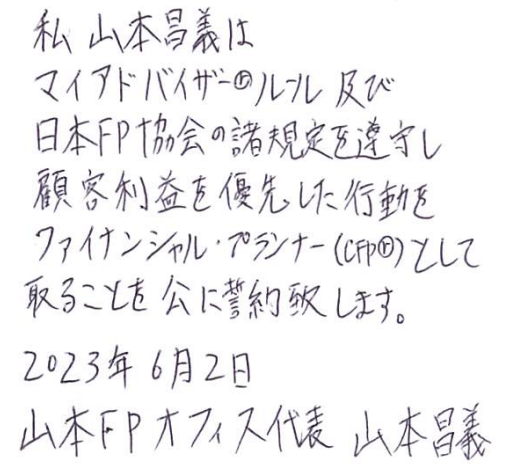 私 山本昌義は
マイアドバイザー®ルール 及び
日本FP協会の諸規定を遵守し
顧客利益を優先した行動を
ファイナンシャル・プランナー(CFP®)として
取ることを 公に誓約致します。
2023年 6月2日
山本FPオフィス代表 山本昌義